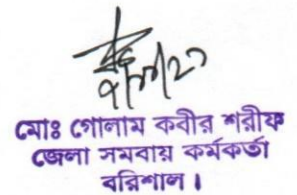 মোঃ গোলাম কবীর শরীফ
জেলা সমবায় কর্মকর্তা
বরিশাল।